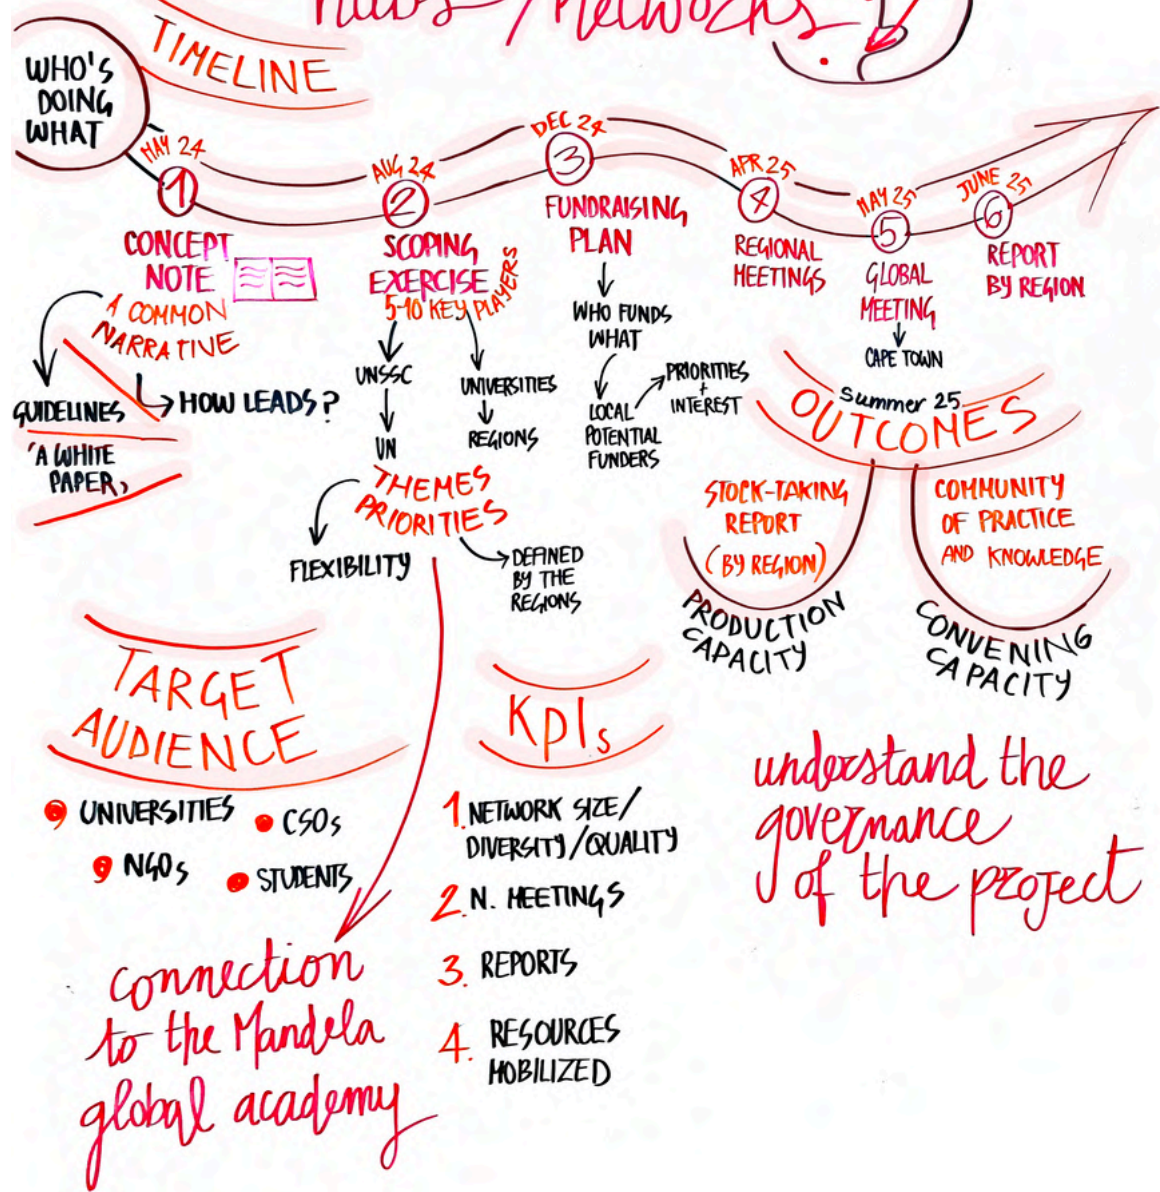 hubs/networks
TIMELINE
WHO'S
DOING
WHAT
MAY 24
1
CONCEPT
NOTE
A COMMON
NARRATIVE
GUIDELINES
'A WHITE
PAPER,
HOW LEADS?
AUG 24
2
SCOPING
EXERCISE
5-10 KEY PLAYERS
UNSSC
UN
UNIVERSITIES
REGIONS
THEMES
PRIORITIES
FLEXIBILITY
DEFINED
BY THE
REGIONS
DEC 24
3
FUNDRAISING
PLAN
WHO FUNDS
WHAT
LOCAL
POTENTIAL
FUNDERS
PRIORITIES
+
INTEREST
APR 25
4
REGIONAL
MEETINGS
MAY 25
5
GLOBAL
MEETING
CAPE TOWN
JUNE 25
6
REPORT
BY REGION
Summer 25
OUTCOMES
STOCK-TAKING
REPORT
(BY REGION)
PRODUCTION
CAPACITY
COMMUNITY
OF PRACTICE
AND KNOWLEDGE
CONVENING
CAPACITY
TARGET
AUDIENCE
UNIVERSITIES
CSOs
NGOs
STUDENTS
KPIs
1. NETWORK SIZE/
DIVERSITY/QUALITY
2. N. MEETINGS
3. REPORTS
4. RESOURCES
MOBILIZED
understand the
governance
of the project
connection
to the Mandela
global academy